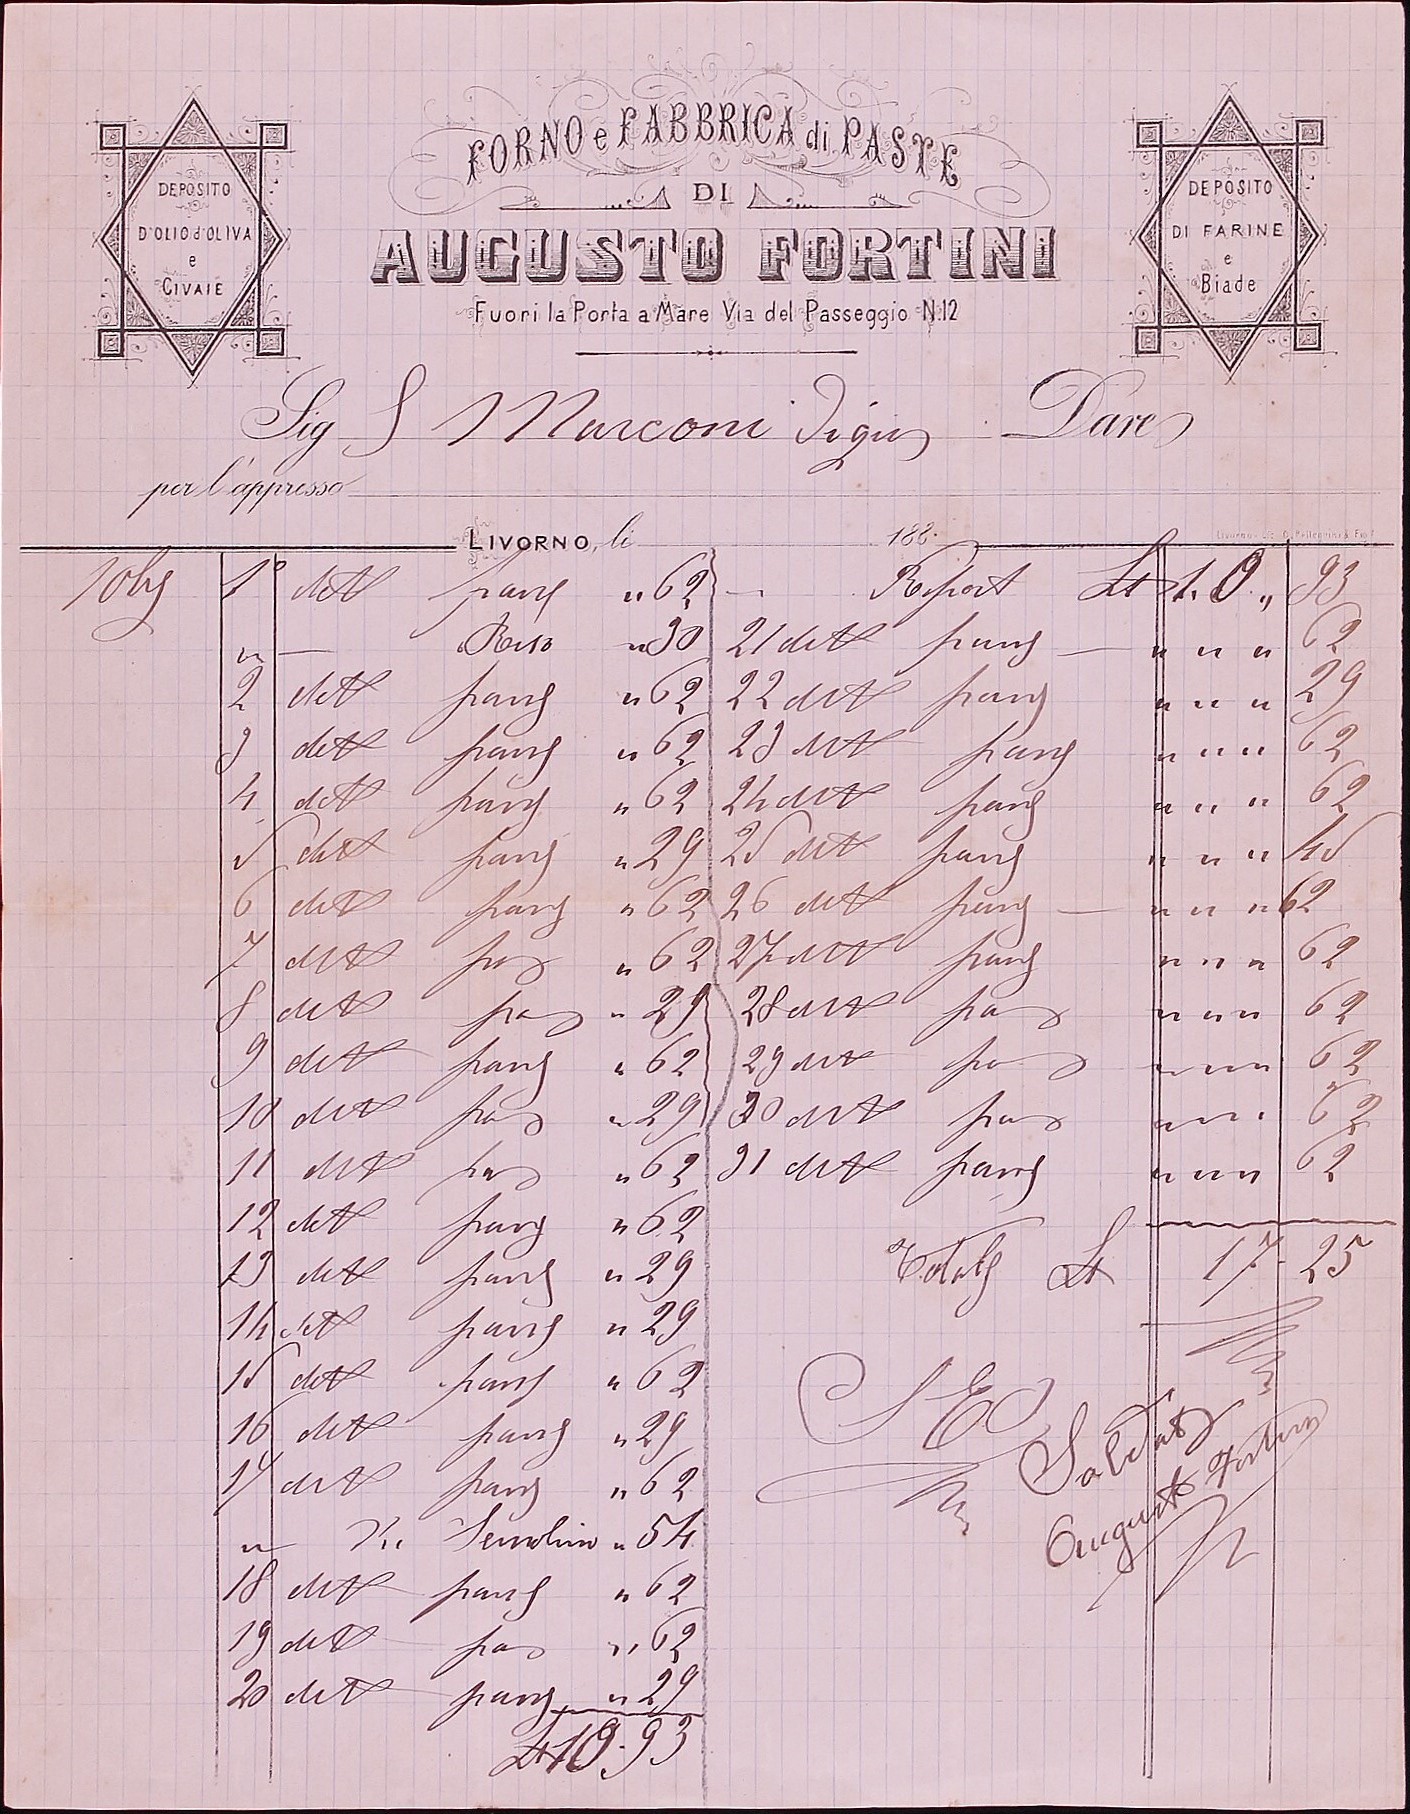 FORNO e FABBRICA di PASTE
DI
AUGUSTO FORTINI
Fuori la Porta a Mare Via del Passeggio N.12
DEPOSITO
D'OLIO d'OLIVA
e
CIVAIE
DEPOSITO
DI FARINE
e
Biade
Sig S Marconi Dare
per l'appresso
LIVORNO, li 188
Livorno Lit. G. Pellegrini &
1° dett pane " 62
" — Riso " 30
2 dett pane " 62
3 dett pane " 62
4 dett pane " 62
5 dett pane " 29
6 dett pane " 62
7 dett pane " 62
8 dett pane " 29
9 dett pane " 62
10 dett pane " 29
11 dett pane " 62
12 dett pane " 62
13 dett pane " 29
14 dett pane " 29
15 dett pane " 62
16 dett pane " 29
17 dett pane " 62
" Semolino " 54
18 dett pane " 62
19 dett pane " 62
20 dett pane " 29
Lt 10.93
Riport Lt 10 " 93
21 dett pane — " " " 62
22 dett pane " " " 29
23 dett pane " " " 62
24 dett pane " " " 62
25 dett pane " " " 45
26 dett pane — " " " 62
27 dett pane " " " 62
28 dett pane " " " 62
29 dett pane " " " 62
30 dett pane " " " 62
31 dett pane " " " 62
Totale Lt 17-25
S E O
Saldato
Augusto Fortini